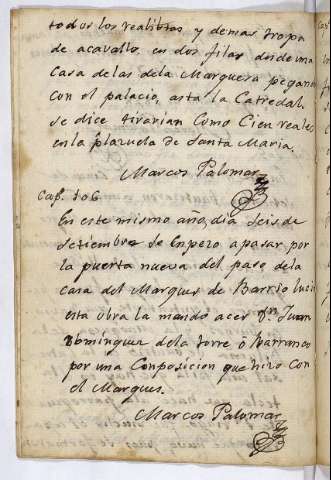 todos los realistas y demas tropa
de acavallo en dos filas desde una
Casa de las de la Marquesa pegan
con el palacio, asta la Catredal
se dice tirarian Como Cien reales
en la plazuela de Santa Maria.
Marcos Palomar
Cap. 106
En este mismo año, dia Seis de
Setiembre se Enpezo a pasar, por
la puerta nueva del paso de la
casa del Marques de Barrio lucio
esta obra la mando acer Dn. Juan
Dominguez de la torre o Barranco
por una Conposicion que hizo con
el Marques.
Marcos Palomar